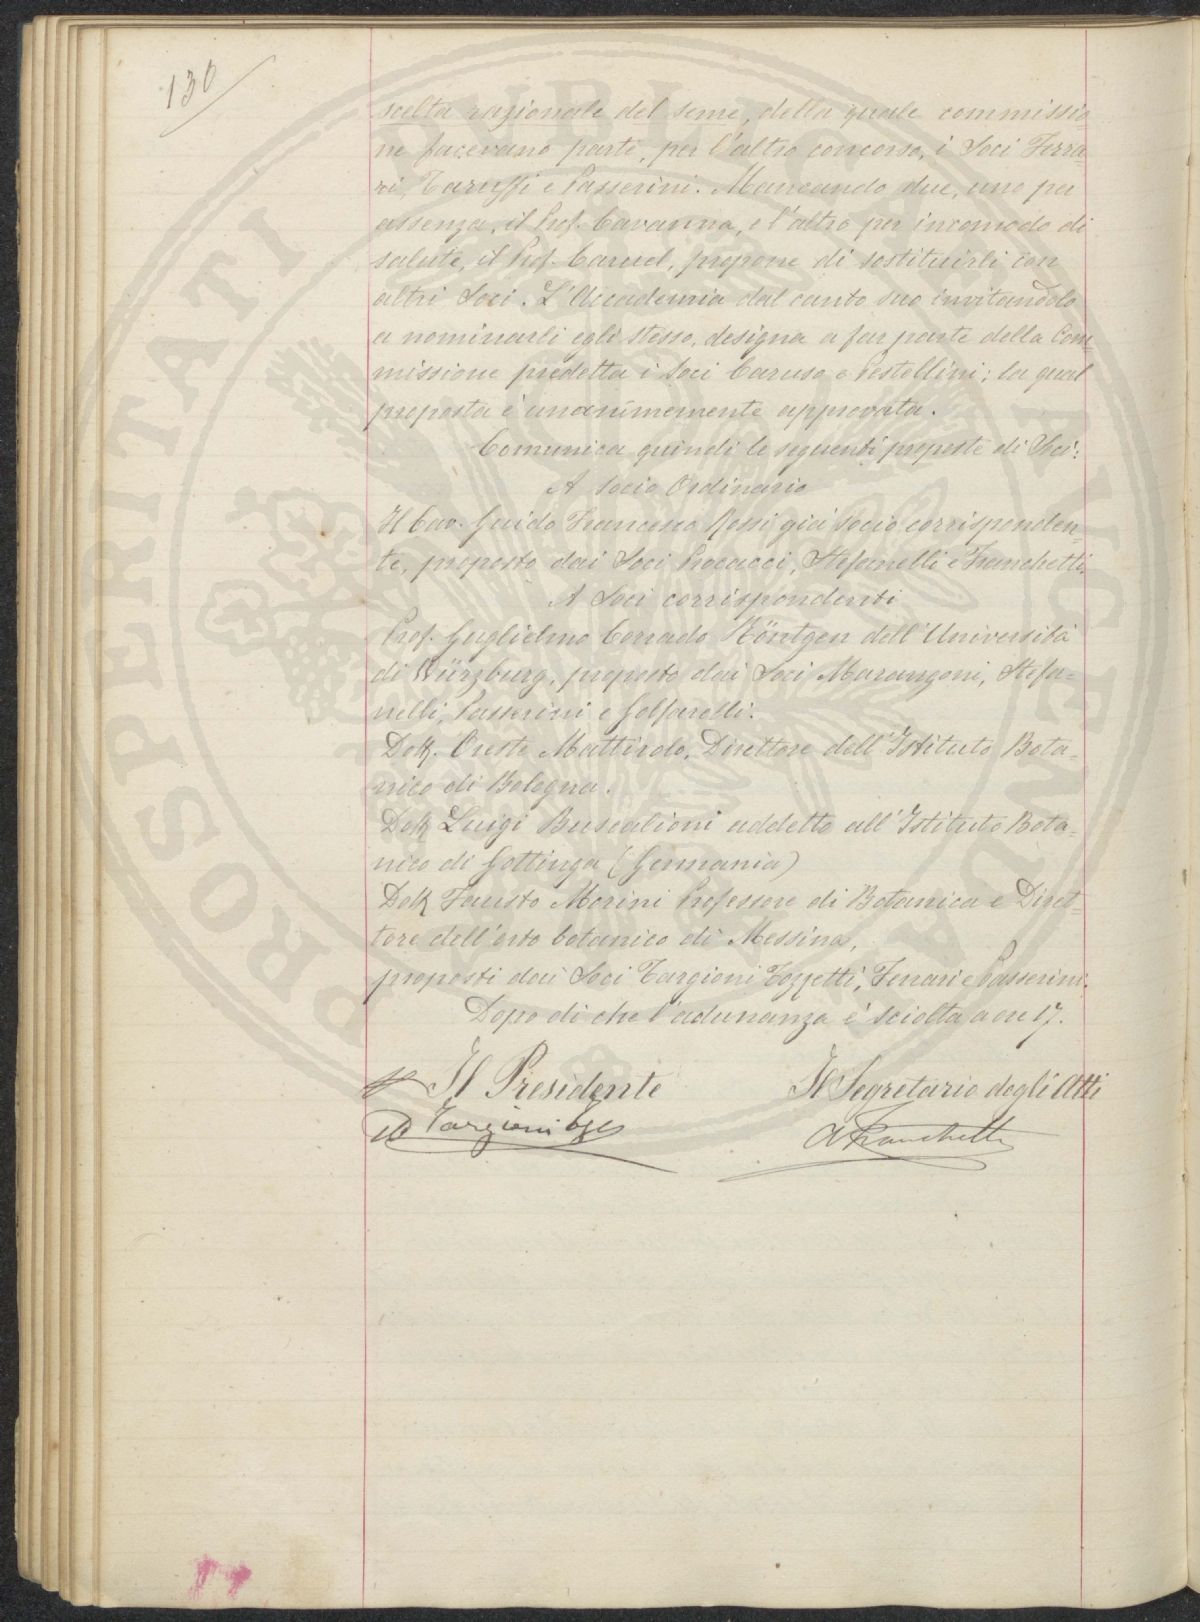 130
scelta razionale del seme, della quale commissio-
ne facevano parte, per l'altro concorso, i Soci Ferra-
ri, Taruffi e Passerini. Mancando due, uno per
assenza, il Prof. Cavanna, e l'altro per incomodo di
salute, il Prof. Caruel, propone di sostituirli con
altri Soci. L'Accademia dal canto suo invitandolo
a nominarli egli stesso, designa a far parte della Com-
missione predetta i Soci Caruso e Pestellini; la qual
proposta è unanimemente approvata.
Comunica quindi le seguenti proposte di Soci:
A Socio Ordinario
Il Cav. Guido Francesco Rossi già Socio corrisponden-
te, proposto dai Soci Procacci, Stefanelli e Franchetti.
A Soci corrispondenti
Prof. Guglielmo Corrado Röntgen dell'Università
di Würzburg, proposto dai Soci Marangoni, Stefa=
nelli, Passerini e Golfarelli.
Dott. Oreste Mattirolo, Direttore dell'Istituto Bota=
nico di Bologna.
Dott Luigi Buscalioni addetto all'Istituto Bota=
nico di Gottinga (Germania)
Dott Fausto Morini Professore di Botanica e Diret-
tore dell'orto botanico di Messina,
proposti dai Soci Targioni Tozzetti, Ferrari e Passerini.
Dopo di che l'adunanza è sciolta a ore 17.
Il Presidente
Il Segretario degli Atti
Targioni Tzz
A Franchetti
PROSPERITATI PUBLICAE AUGENDAE